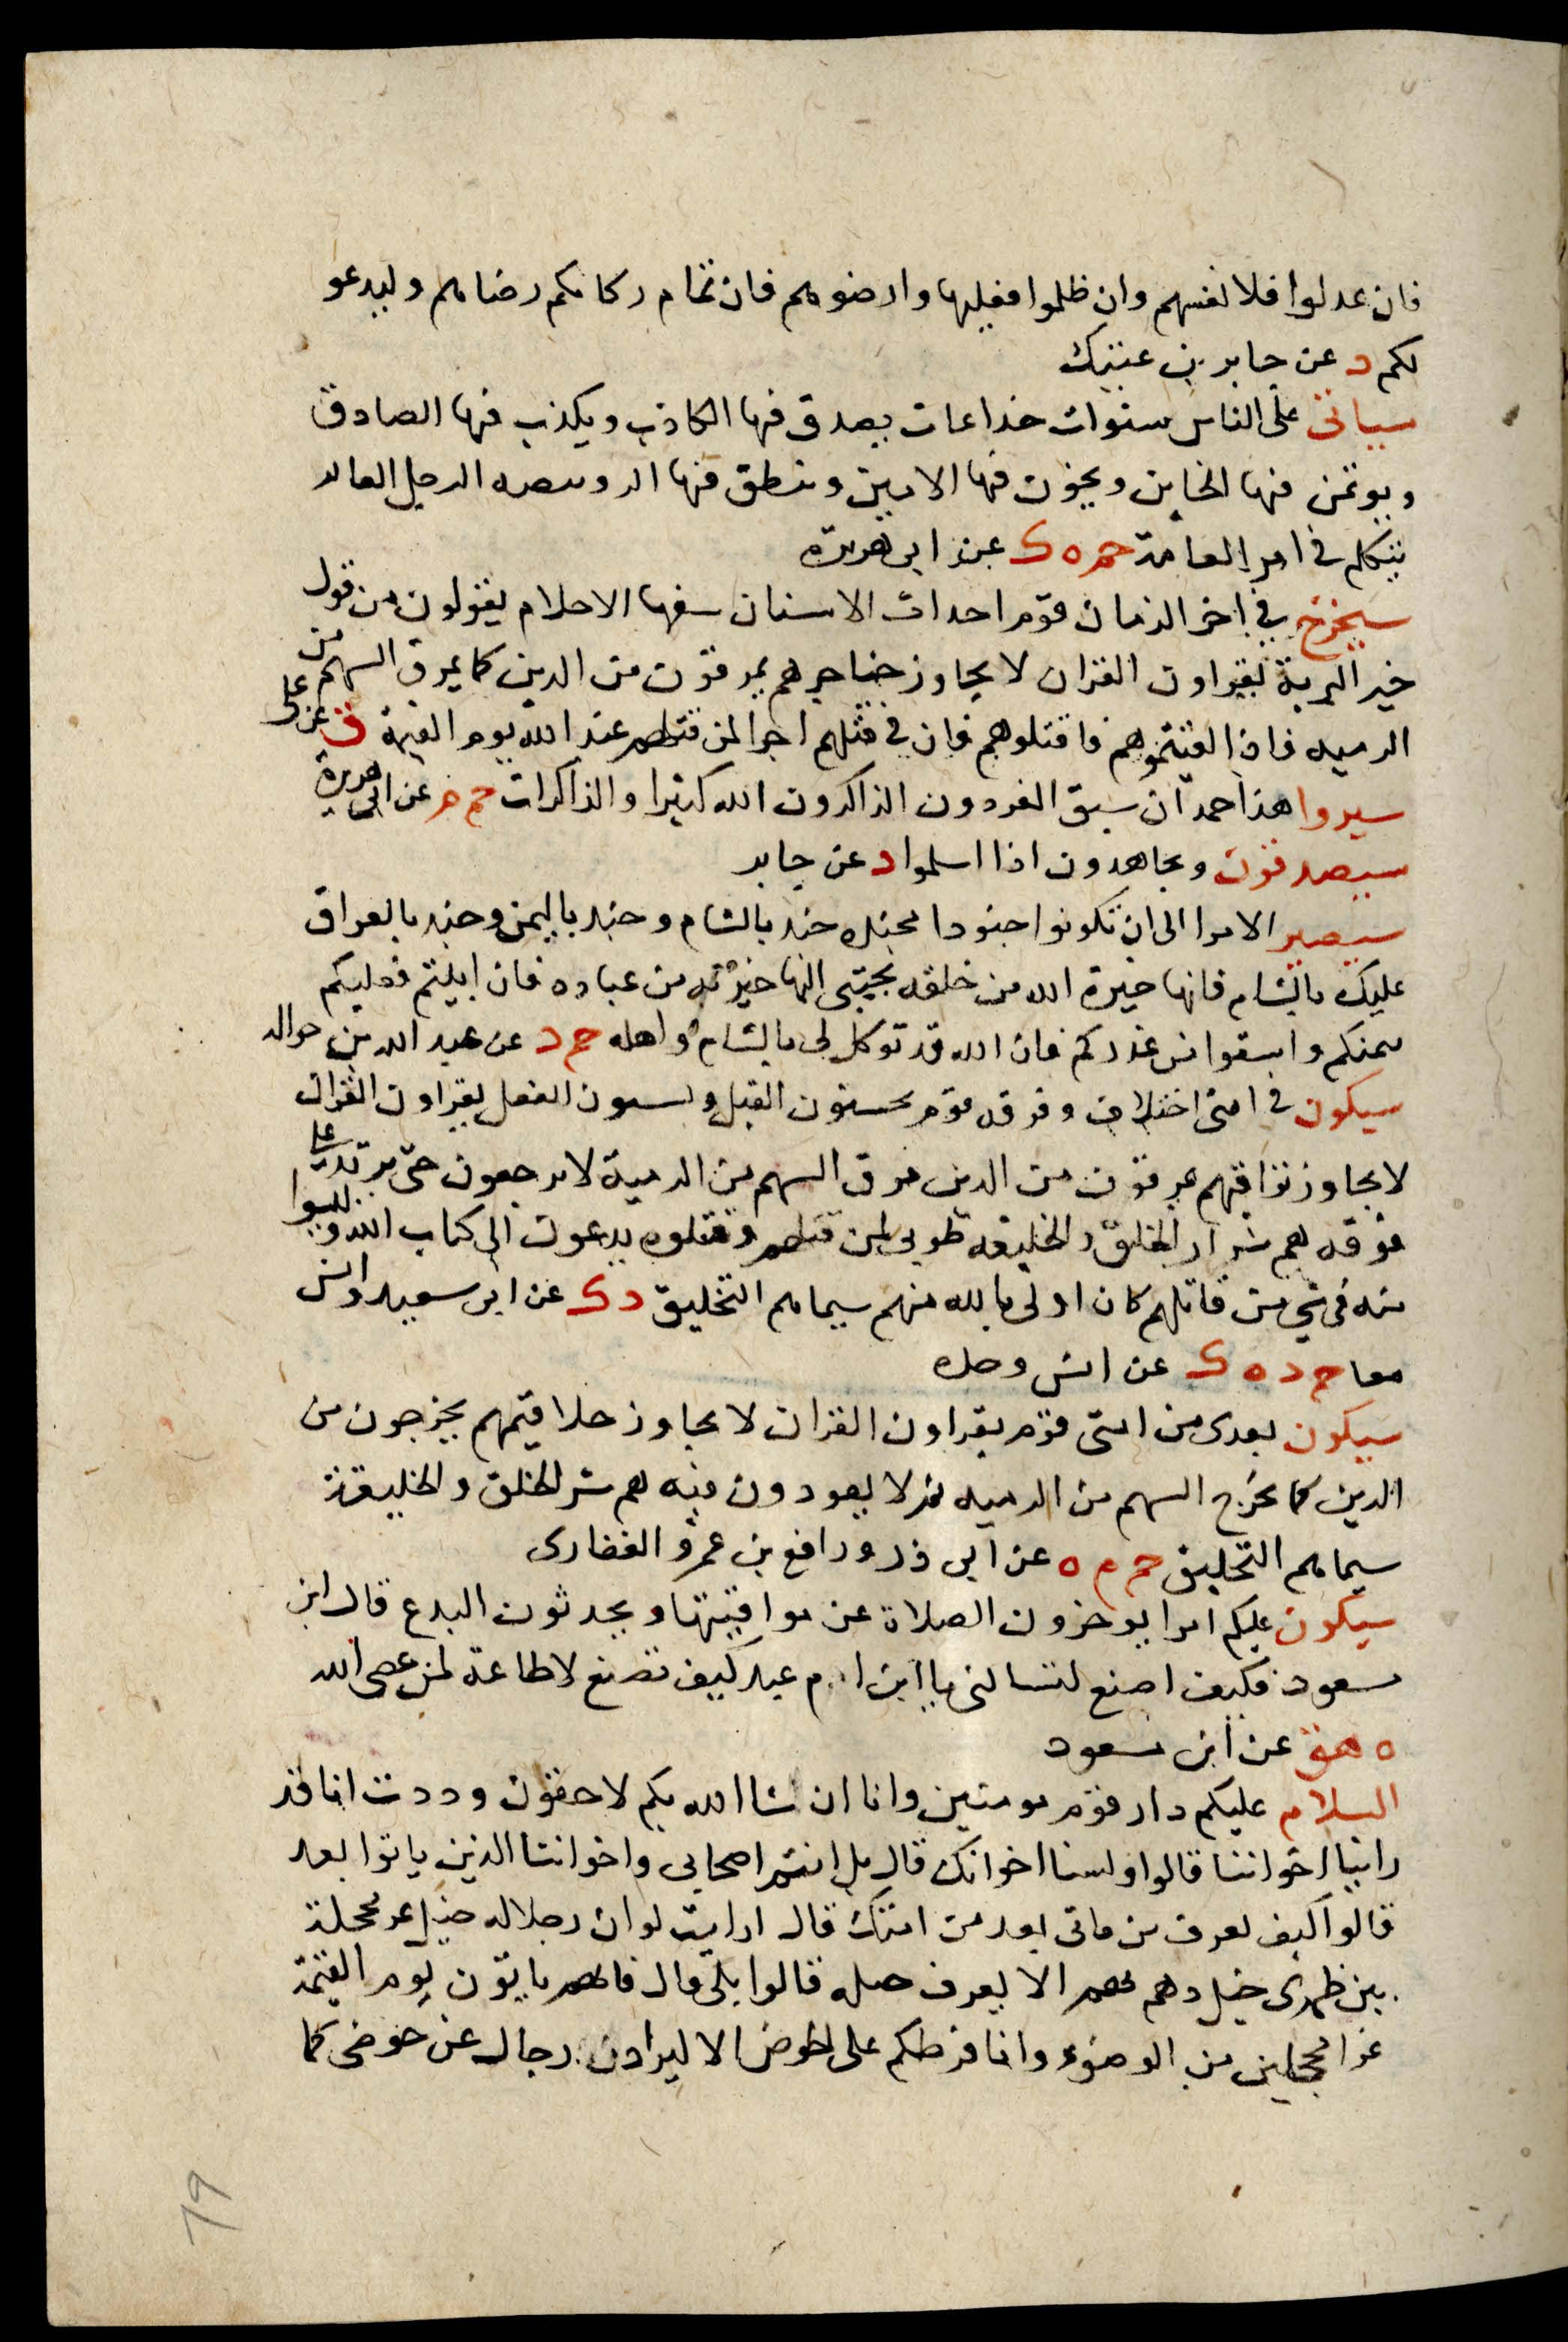 فان عدلوا فلانفسهم وان ظلموا فعليها وارضوهم فان تمام زكاتكم رضاهم وليدعو
لكم د عن جابر بن عتيك
سياتى على الناس سنوات خداعات يصدق فيها الكاذب ويكذب فيها الصادق
ويوتمن فيها الخاين ويخون فيها الامين وينطق فيها الرويبضه الرجل
يتكلم فى امر العامة حم ه ك عن ابى هريرة
سيخرج فى اخر الزمان قوم احداث الاسنان سفها الاحلام يقولون من قول
خير البرية يقراون القران لا يجاوز حناجرهم يمرقون من الدين كما يمرق السهم من
الرميه فاذا لقيتموهم فاقتلوهم فان فى قتلهم اجرا لمن قتلهم عند الله يوم القيمة ق عن على
سيروا هذا حمدان سبق المفردون الذاكرون الله كثيرا والذاكرات حم م عن ابى هريرة
سيصدقون ويجاهدون اذا اسلموا د عن جابر
سيصير الامر الى ان تكونوا جنودا مجنده جند بالشام وجند باليمن وجند بالعراق
عليك بالشام فانها خيرة الله من خلقه يجتبى اليها خيرته من عباده فان ابيتم فعليكم
بيمنكم واسقوا من غدركم فان الله قد توكل لى بالشام واهله حم د عن عبد الله بن حواله
سيكون فى امتى اختلاف وفرقه قوم يحسنون القيل ويسيون الفعل يقراون القران
لا يجاوز تراقيهم يمرقون من الدين مروق السهم من الرمية لا يرجعون حتى يرتد على
فوقه هم شرار الخلق والخليقه طوبى لمن قتلهم وقتلوه يدعون الى كتاب الله وليسوا
منه فى شى من قاتلهم كان اولى بالله منهم سيماهم التحليق د ك عن ابى سعيد وانس
معا حم د ه ك عن انس وحده
سيكون بعدى من امتى قوم يقراون القران لا يجاوز حلاقيمهم يخرجون من
الدين كما يخرج السهم من الرميه ثم لا يعودون فيه هم شر الخلق والخليقة
سيماهم التحليق حم م ه عن ابى ذر ورافع بن عمرو الغفارى
سيكون عليكم امرا يوخرون الصلاة عن مواقيتها ويحدثون البدع قال ابن
مسعود فكيف اصنع لتسالنى يا ابن ام عبد كيف تصنع لا طاعة لمن عصى الله
ه هق عن ابن مسعود
السلام عليكم دار قوم مومنين وانا ان شا الله بكم لاحقون وددت انا قد
راينا اخواننا قالوا اولسنا اخوانك قال بل انتم اصحابى واخواننا الذين ياتوا بعد
قالوا كيف تعرف من ياتى بعد من امتك قال ارايت لو ان رجلا له خيل غر محجلة
بين ظهرى خيل دهم بهم الا يعرف خيله قالوا بلى قال فانهم ياتون يوم القيمة
غرا محجلين من الوضوء وانا فرطكم على الحوض الا ليذادن رجال عن حوضى كما
79